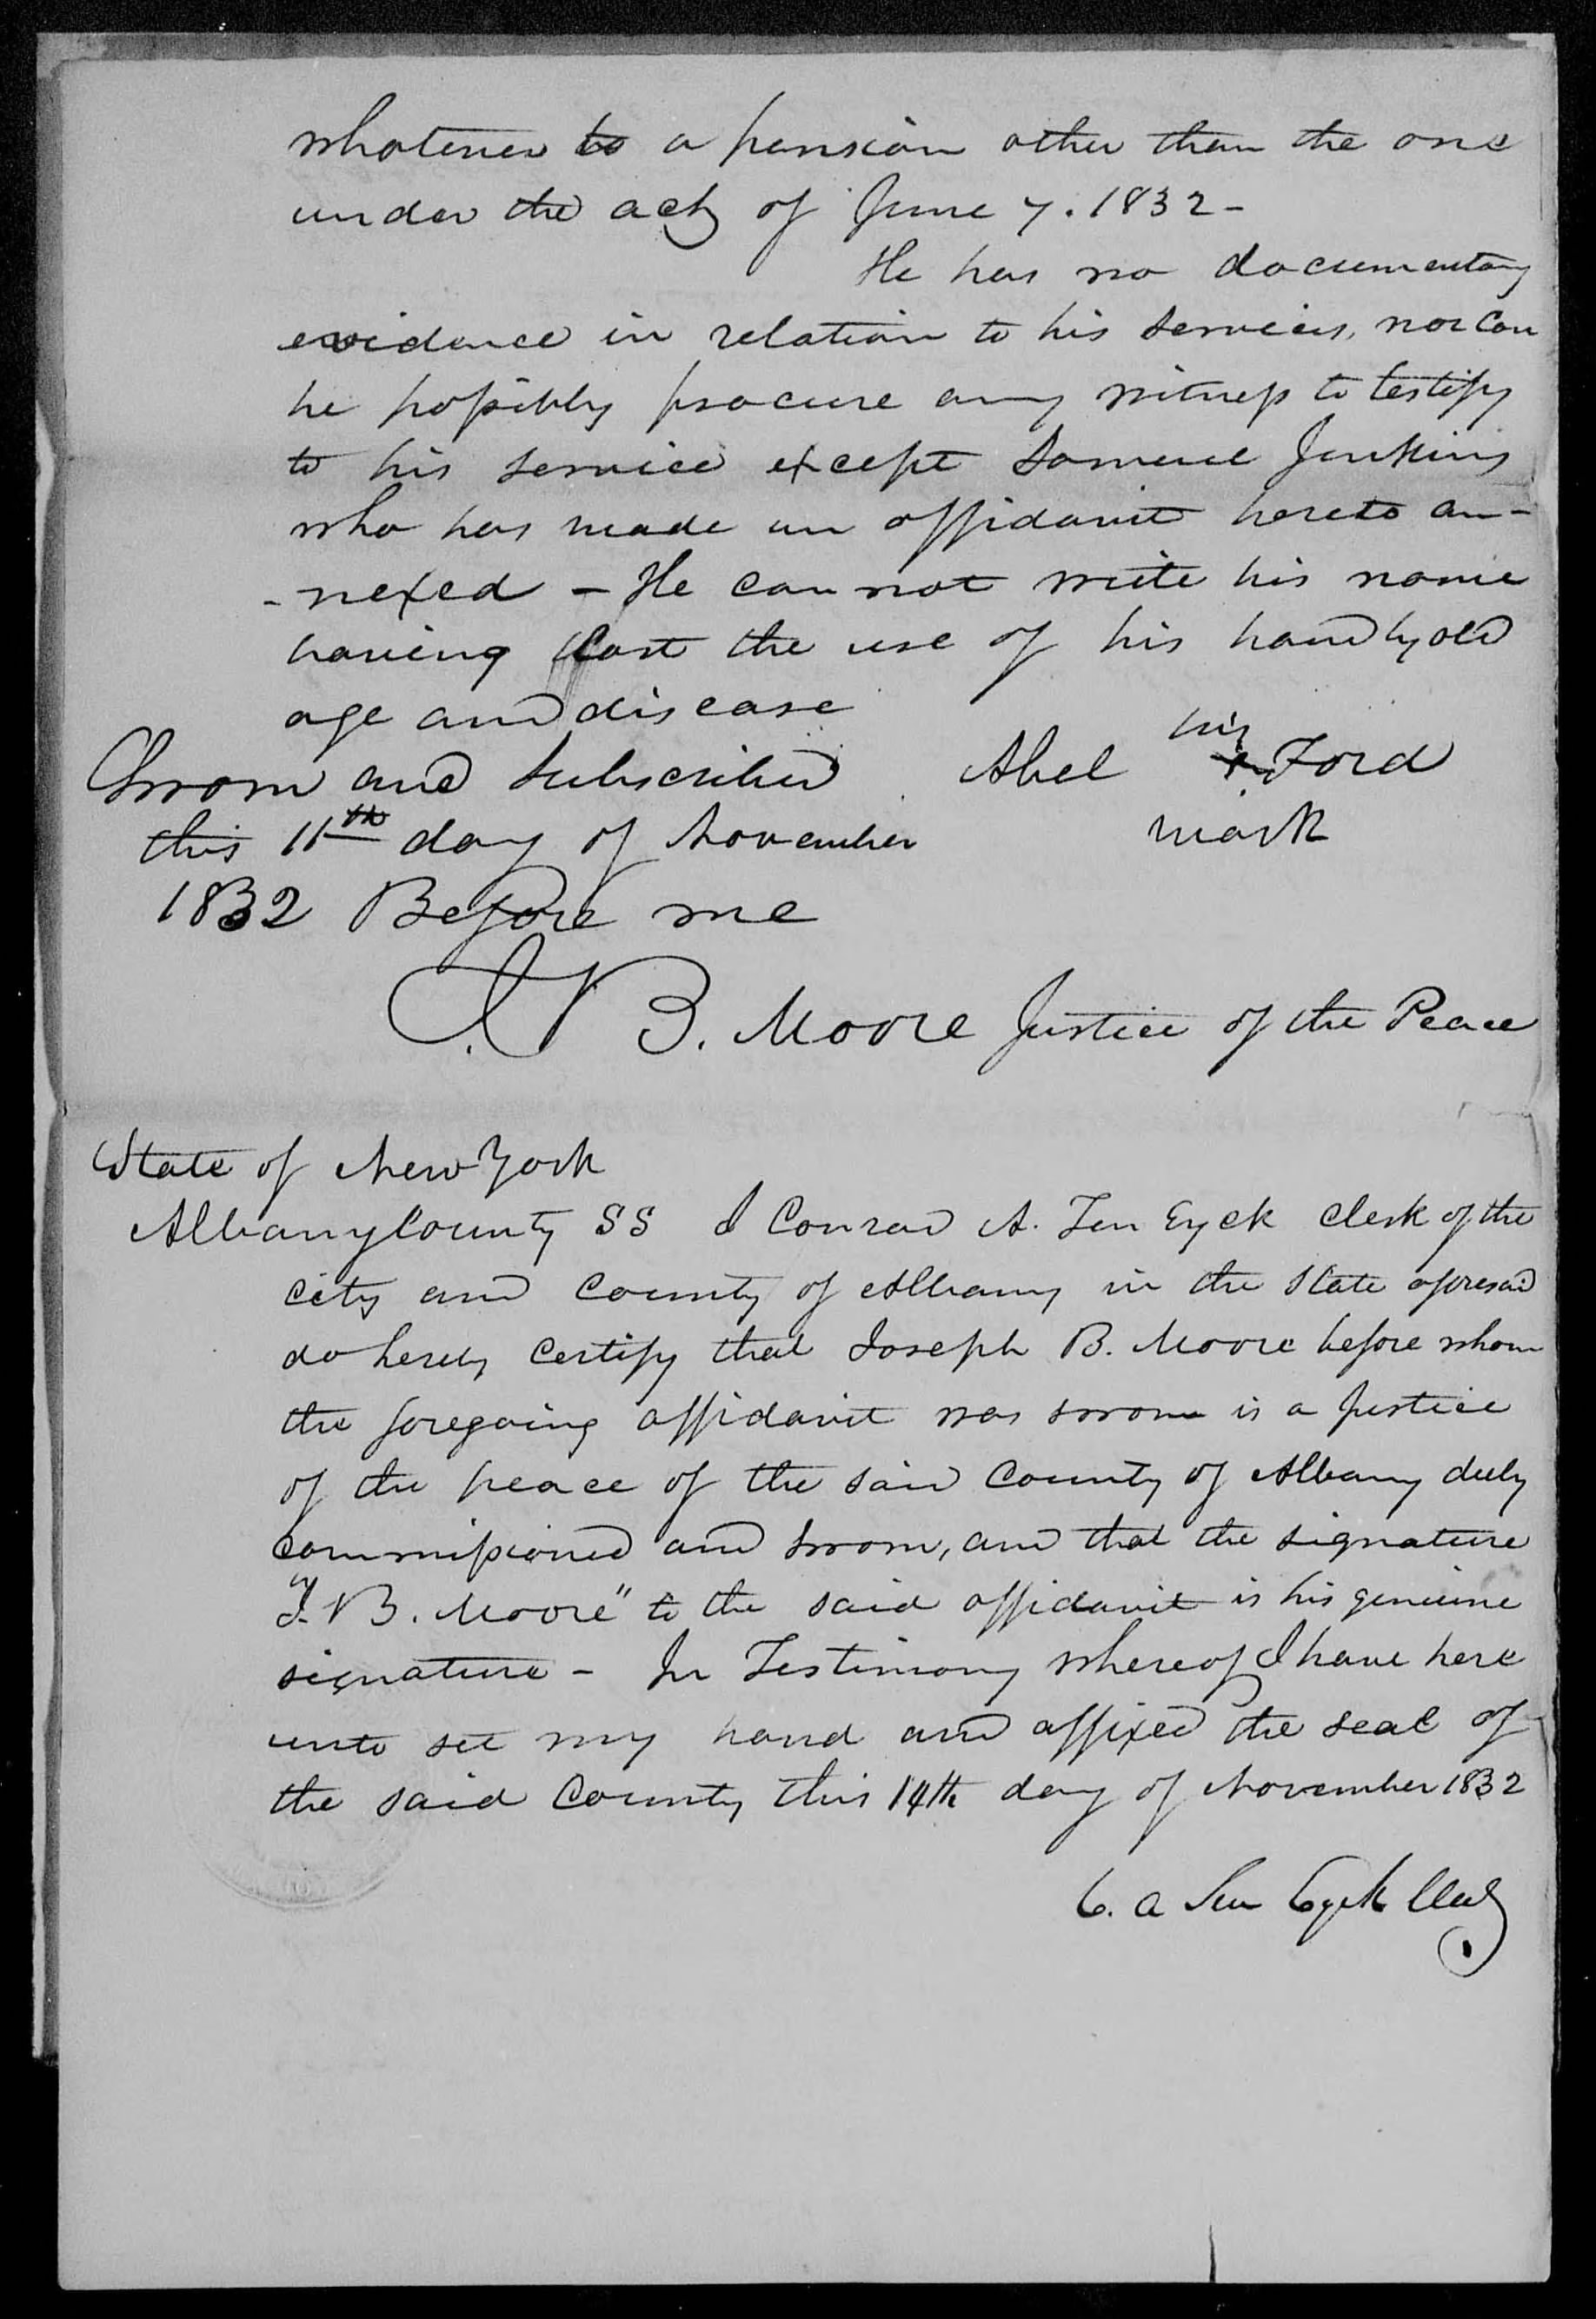 whatever to a pension other than the one
under the act of June 7. 1832 -
He has no documentary
evidence in relation to his services, nor can
he possibly procure any witness to testify
to his service except Samuel Jenkins
who has made an affidavit hereto an-
-nexed - He can not write his name
having lost the use of his hand by old
age and disease
Sworn and subscribed Abel his x Ford
this 11th day of November mark
1832 Before me
J. B. Moore Justice of the Peace
State of New York
Albany County SS I Conrad A. Ten Eyck Clerk of the
city and County of Albany in the State aforesaid
do hereby certify that Joseph B. Moore before whom
the foregoing affidavit was sworn is a Justice
of the peace of the said County of Albany duly
commissioned and sworn, and that the signature
"J. B. Moore" to the said affidavit is his genuine
signature - In Testimony whereof I have here
unto set my hand and affixed the seal of
the said County this 14th day of November 1832
C. A Ten Eyck Clerk